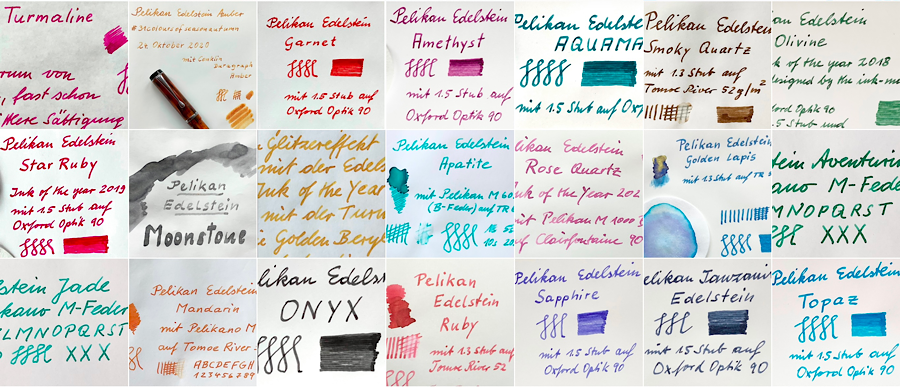 Turmaline
rum von
fast schon
Sättigung
Pelikan Edelstein Amber
24 Oktober 2020
mit Conklin
Duragraph
Amber
Pelikan Edelstein
Garnet
mit 1.5 Stub auf
Oxford Optik 90
Pelikan Edelstein
Amethyst
mit 1.5 Stub auf
Oxford Optik 90
Pelikan Edelste
AQUAMA
mit 1.5 Stub auf Ox
Pelikan Edelstein
Smoky Quartz
mit 1.3 Stub auf
Tomoe River 52g/m²
Edelstein
Olivine
year 2018
esigned by the ink-m
ord Optik 90
.5 Stub und
Pelikan Edelstein
Star Ruby
Ink of the year 2019
mit 1.5 Stub auf
Oxford Optik 90
Pelikan
Edelstein
Moonstone
Glitzereffekt
mit der Edels
Ink of the Year
mit der Turm
e Golden Beryl
Pelikan Edelstein
Apatite
mit Pelikan M 60
(B-Feder) auf TR
kan Edelstein
Rose Quartz
nk of the Year 202
mit Pelikan M 1000
f Clairefontaine 90
Pelikan Edelstein
Golden Lapis
mit 1.3 Stub auf TR
tein Aventurin
kano M-Fede
MNOPQRST
XXX
lstein Jade
kano M-Feder
LMNOPQRST
XXX
Pelikan Edelstein
Mandarin
mit Pelikano M
auf Tomoe River
ABCDEFGH
123456789
elikan Edels
ONYX
Pelikan
Edelstein
Ruby
mit 1.3 Stub auf
Tomoe River 52
Pelikan Edelstein
Sapphire
mit 1.5 Stub auf
Oxford Optik 90
elikan Tanzani
Edelstein
mit 1.5 Stub auf
Oxford Optik 90
Pelikan Edelstein
Topaz
mit 1.5 Stub auf
Oxford Optik 90